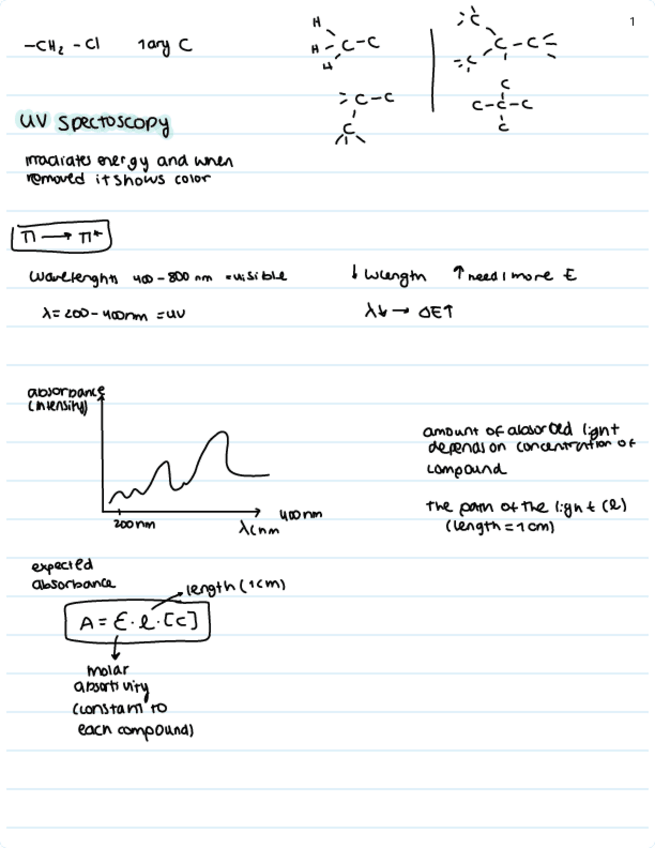 1
-CH₂-Cl 1ary C
H
H-C-C
H
C-C
C
C
C-C
C
C
C-C-C
C
UV Spectoscopy
irradiates energy and when
removed it shows color
π → π*
wavelenghts 400-800 nm = visible
↓ wlength ↑ need more E
λ = 200-400nm = UV
λ↓ → ΔE↑
absorbance
(intensity)
200nm
λ(nm
400nm
amount of absorbed light
depends on concentration of
compound
the path of the light (l)
(length = 1cm)
expected
absorbance
length (1cm)
A = ε·l·[C]
molar
absortivity
(constant to
each compound)